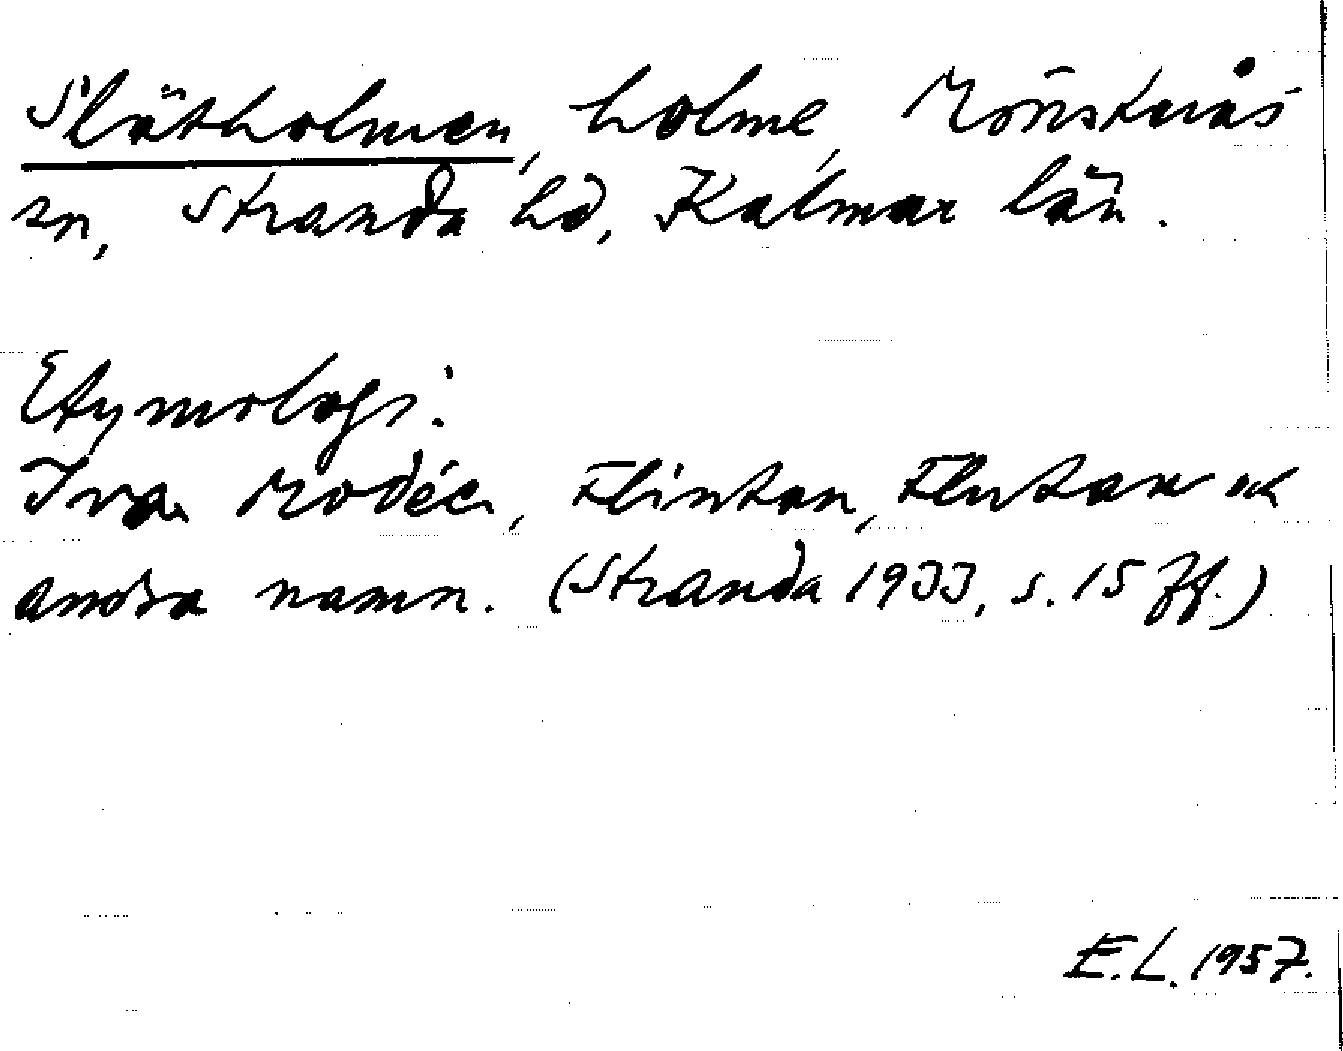 Slätholmen, holme, Mönsterås
sn, Stranda hd, Kalmar län.
Etymologi:
Ivar Modéer, Flintan, Flutan och
andra namn. (Stranda 1933, s. 15 ff.)
E.L. 1957.